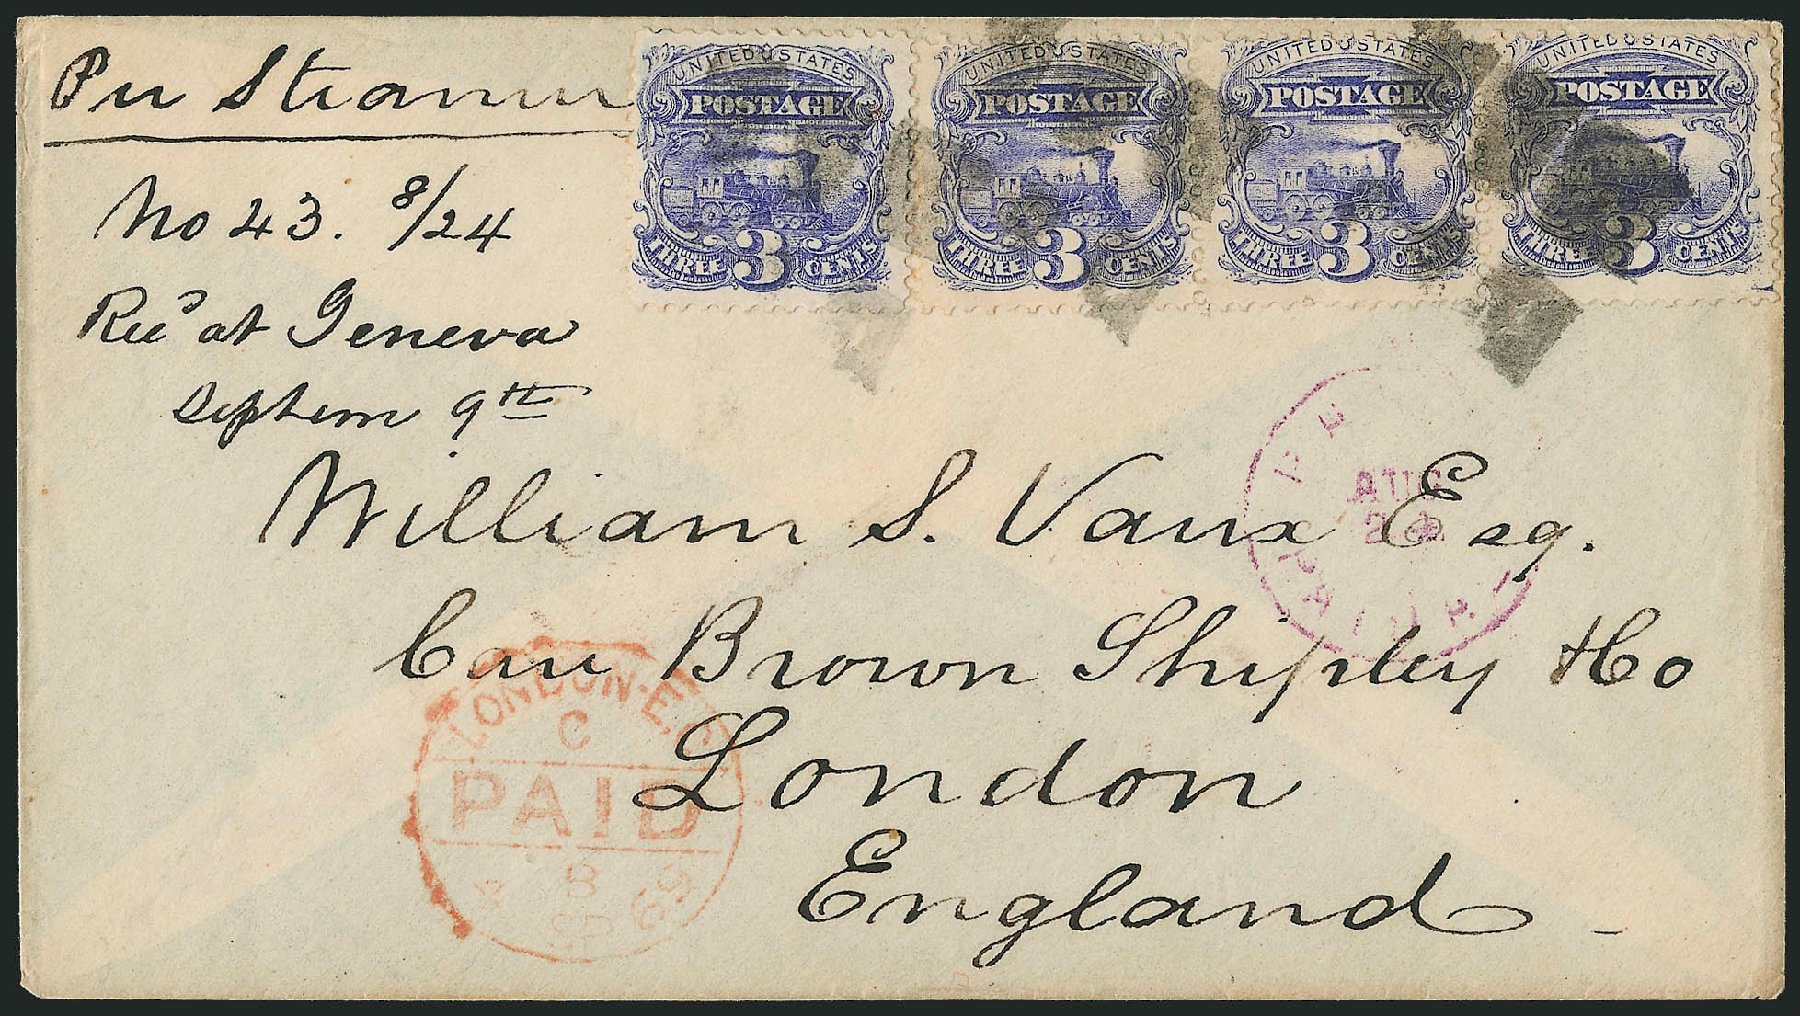 Per Steamer
UNITED STATES POSTAGE THREE 3 CENTS
UNITED STATES POSTAGE THREE 3 CENTS
UNITED STATES POSTAGE THREE 3 CENTS
UNITED STATES POSTAGE THREE 3 CENTS
No 43. 8/24
Recd at Geneva
Septem 9th
William S. Vaux Esq.
Care Brown Shipley & Co
London
England
AUG
PAID
LONDON·E.C
C
PAID
SP 69